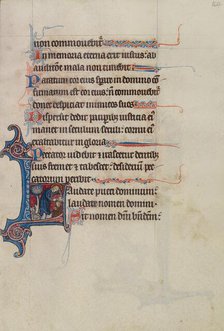 non commouebit᷑
In memoria eterna erit iustus: ab
auditione mala non timebit.
Paratum cor eius spare in domino
eius: non commouebit᷑
donec despiciat inimicos suos
Dispersit dedit pauperib; iusticia
manet in seculum seculi: cornu ei
exaltabitur in gloria
Peccator uidebit et irascetur dentib;
suis fremet et tabescet: desideriu͂ pec
catorum peribit
Laudate pueri dominum:
laudate nomen domini
Sit nomen dn͂i